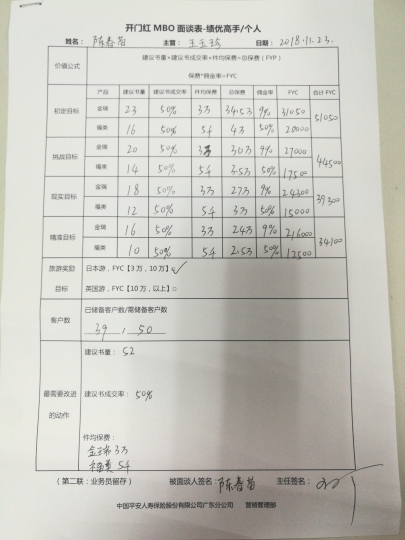 开门红 MBO 面谈表-绩优高手/个人
姓名： 陈春苗 主管： 王玉琦 日期： 2018.11.23.
价值公式 建议书量*建议书成交率*件均保费=总保费（FYP）
保费*佣金率=FYC
产品 建议书量 建议书成交率 件均保费 总保费 佣金率 FYC 合计 FYC
初定目标 金瑞 23 50% 3万 34.5万 9% 31050 51050
福类 16 50% 5千 4万 50% 20000
挑战目标 金瑞 20 50% 3万 30万 9% 27000 44500
福类 14 50% 5千 3.5万 50% 17500
现实目标 金瑞 18 50% 3万 27万 9% 24300 39300
福类 12 50% 5千 3万 50% 15000
精准目标 金瑞 16 50% 3万 24万 9% 216000 34100
福类 10 50% 5千 2.5万 50% 12500
旅游奖励目标 日本游，FYC【3 万，10 万】☑
英国游，FYC【10 万，以上】□
客户数 已储备客户数/需储备客户数
39 / 50
最需要改进的动作 建议书量： 52
建议书成交率： 50%
件均保费：
金瑞 3万
福类 5千
（第二联：业务员留存） 被面谈人签名： 陈春苗 主任签名：
中国平安人寿保险股份有限公司广东分公司 营销管理部